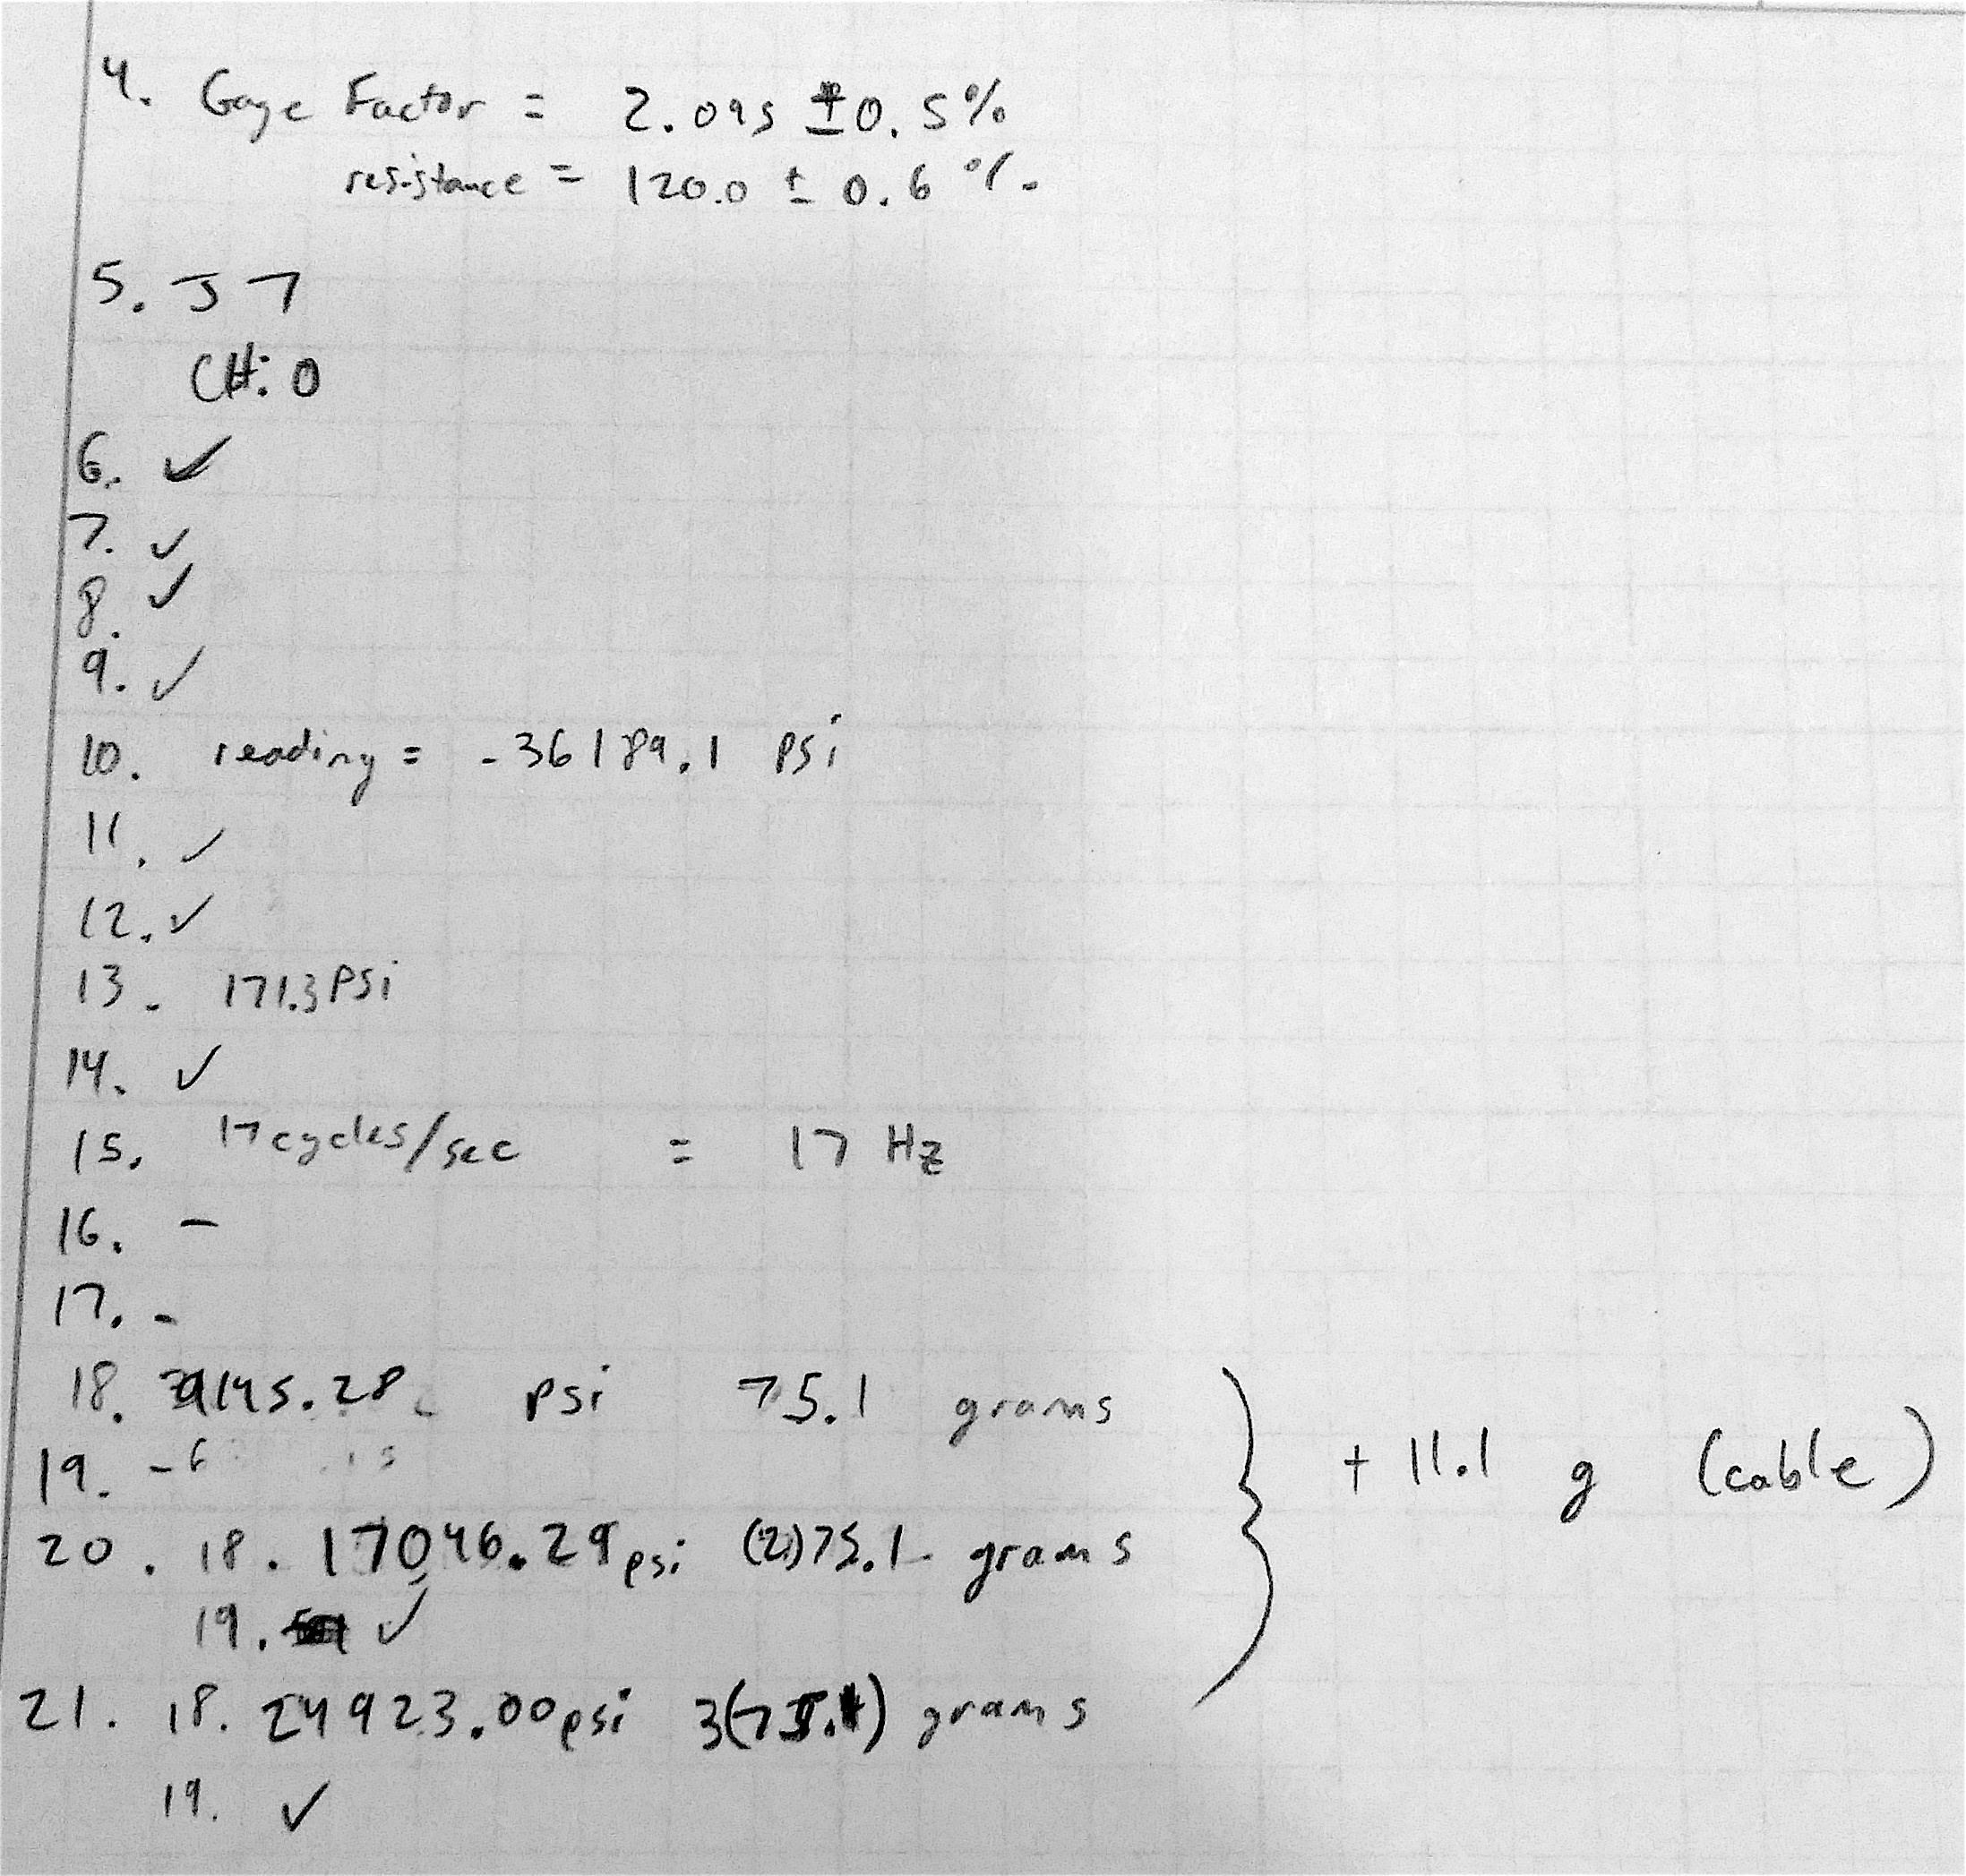 4. Gage Factor = 2.095 ± 0.5%
resistance = 120.0 ± 0.6 %
5. J7
CH: 0
6. ✓
7. ✓
8. ✓
9. ✓
10. reading = -36189.1 psi
11. ✓
12. ✓
13. 171.3 PSi
14. ✓
15. 17 cycles/sec = 17 Hz
16. -
17. -
18. 9145.28 psi 75.1 grams
19. -
+ 11.1 g (cable)
20. 18. 17046.29 psi (2)75.1 grams
19. ✓
21. 18. 24923.00 psi 3(75.1) grams
19. ✓